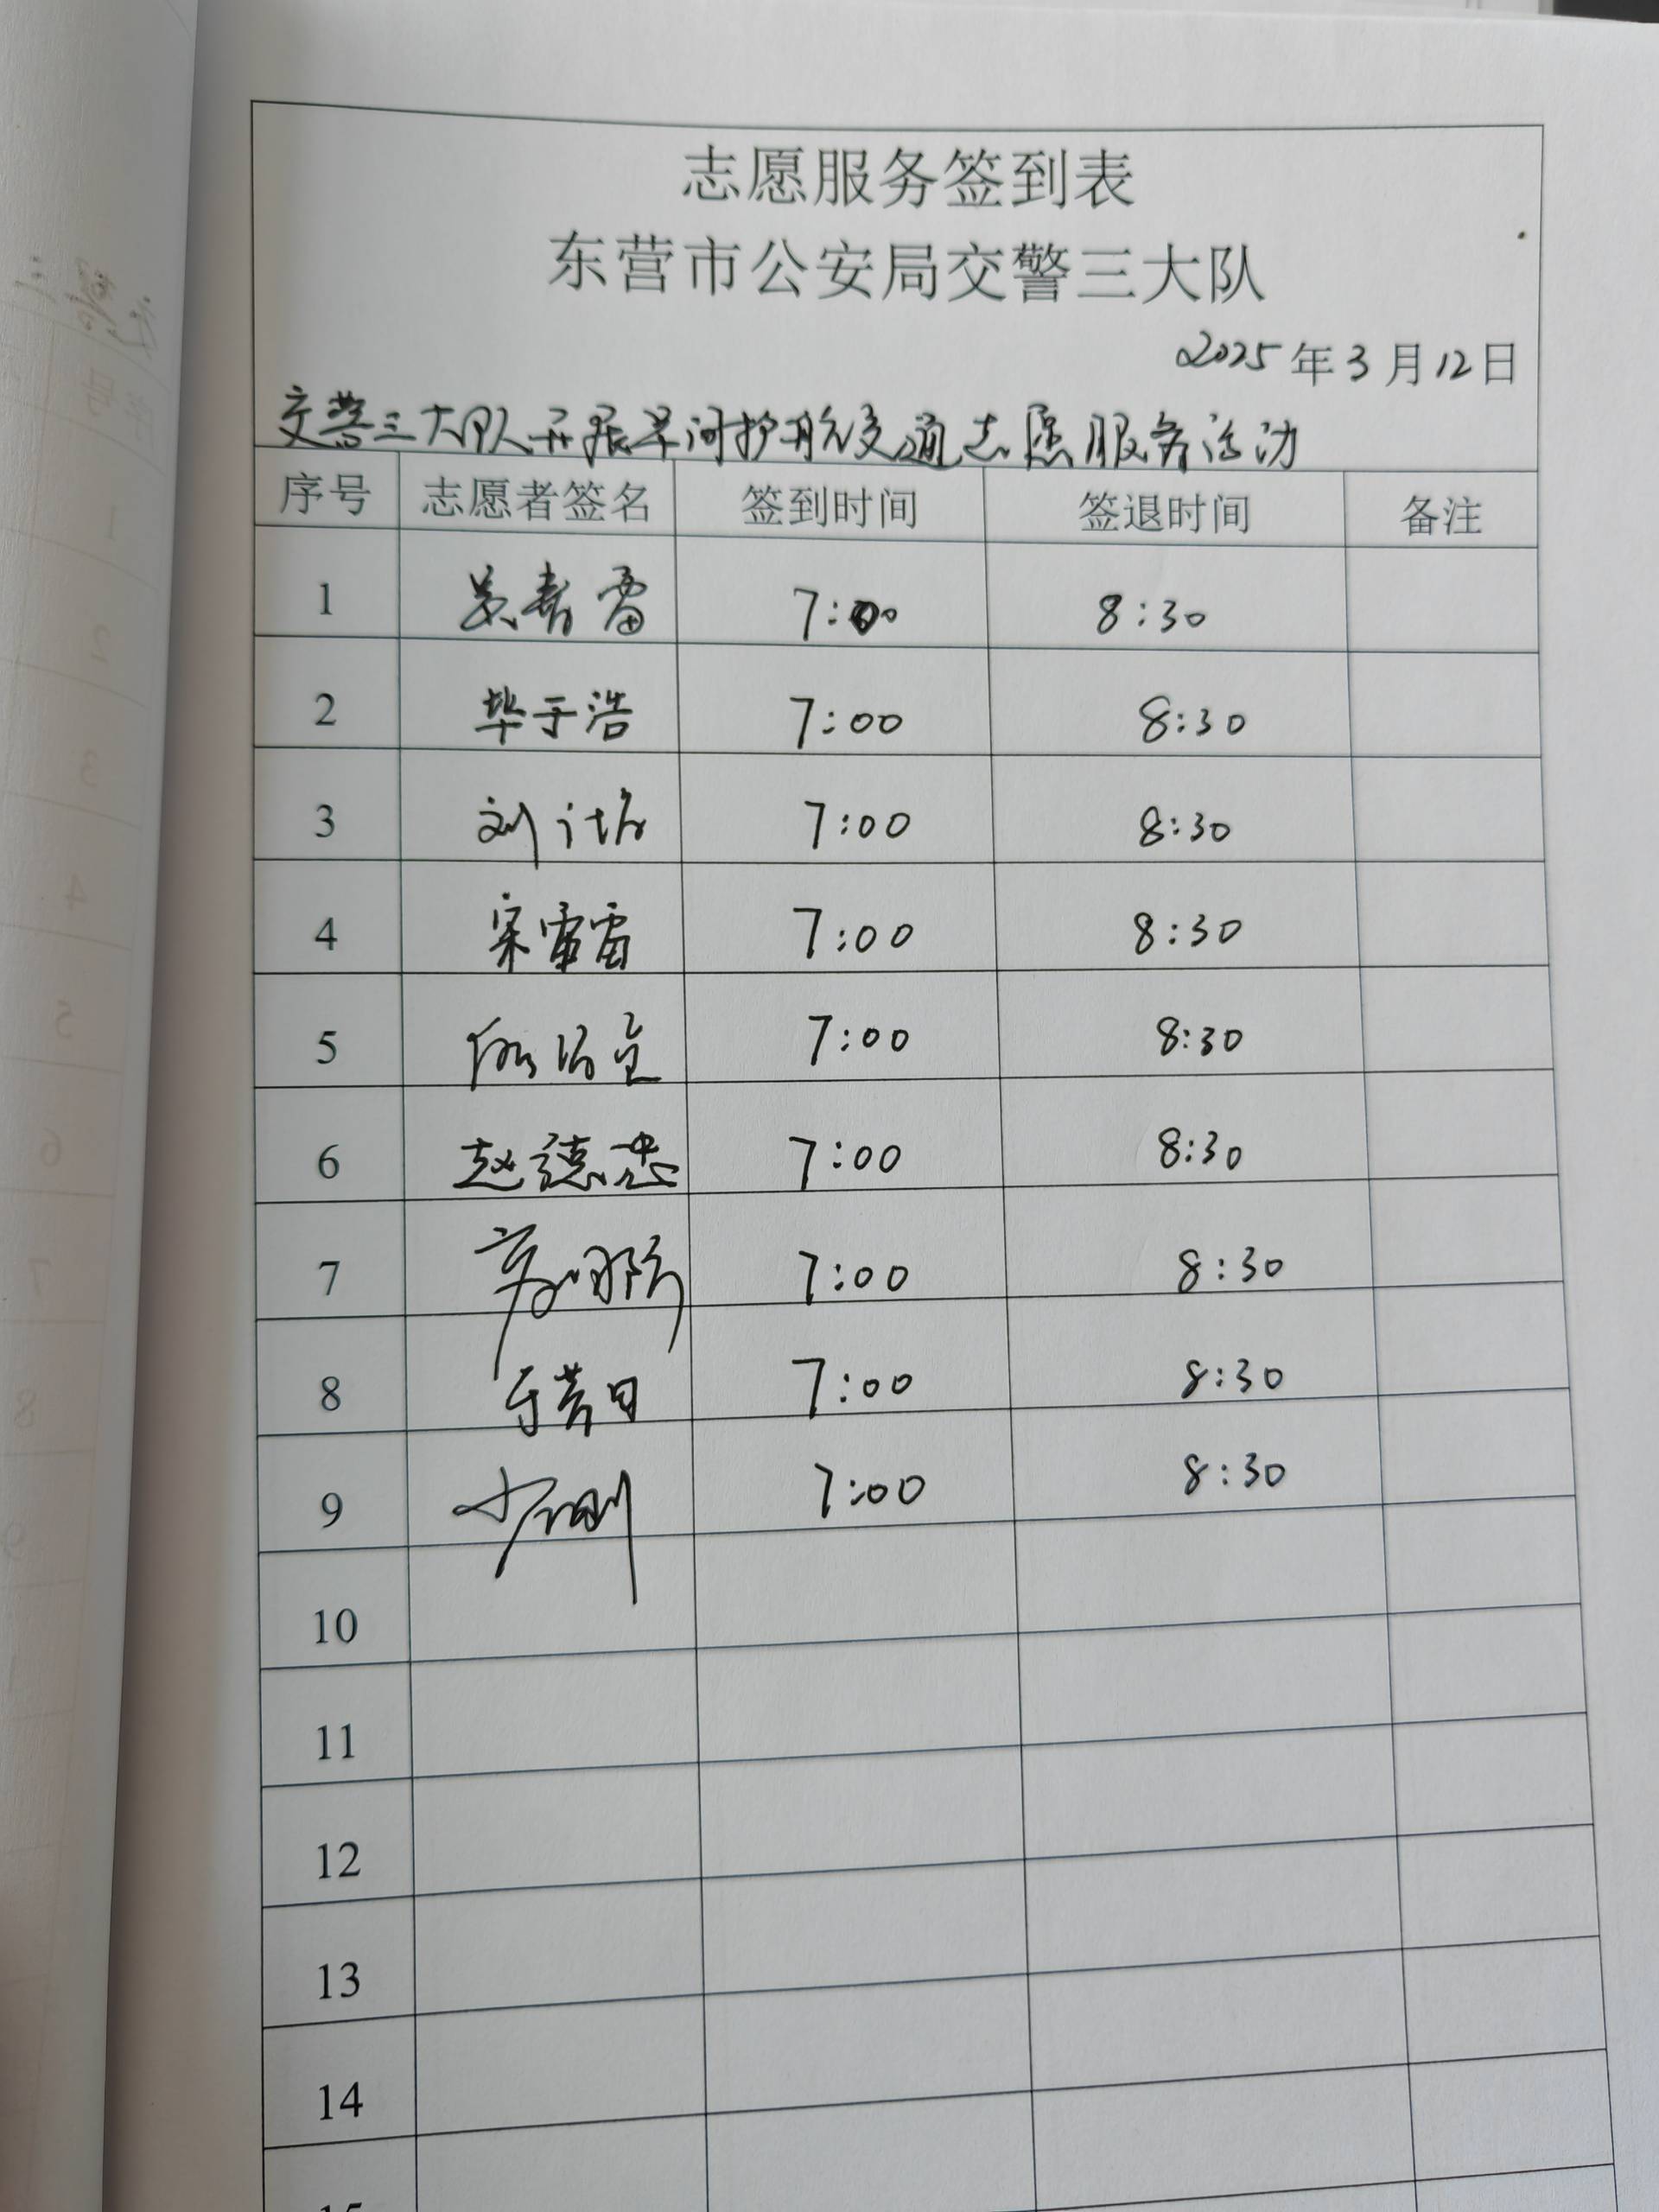 志愿服务签到表
东营市公安局交警三大队
2025年3月12日
交警三大队开展早间护航交通志愿服务活动
序号 志愿者签名 签到时间 签退时间 备注
1 7:00 8:30
2 毕于浩 7:00 8:30
3 刘 7:00 8:30
4 宋雷雷 7:00 8:30
5 7:00 8:30
6 赵德忠 7:00 8:30
7 7:00 8:30
8 7:00 8:30
9 7:00 8:30
10
11
12
13
14
15